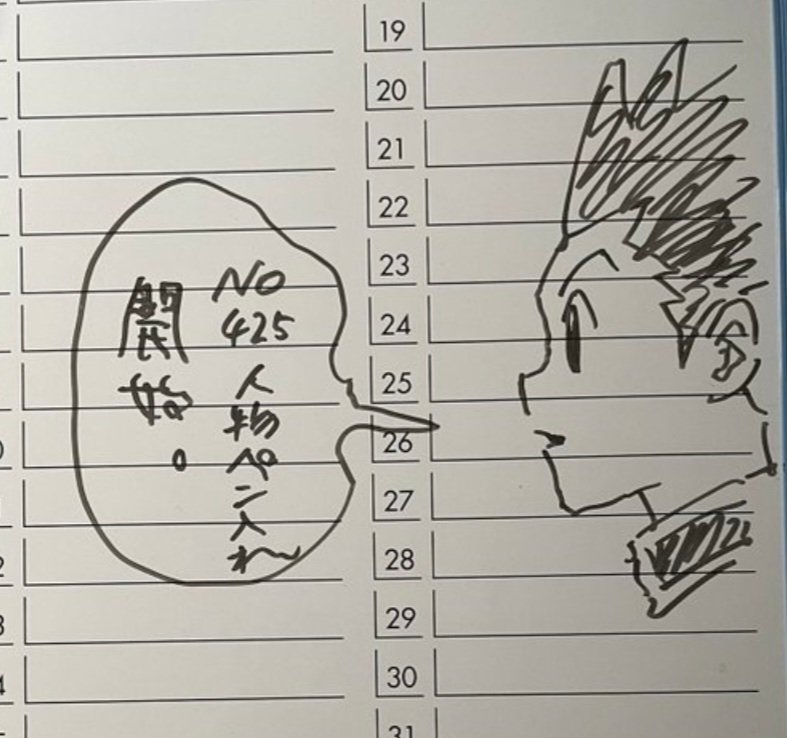 NO 425 人物ペン入れ
開始。
19
20
21
22
23
24
25
26
27
28
29
30
31